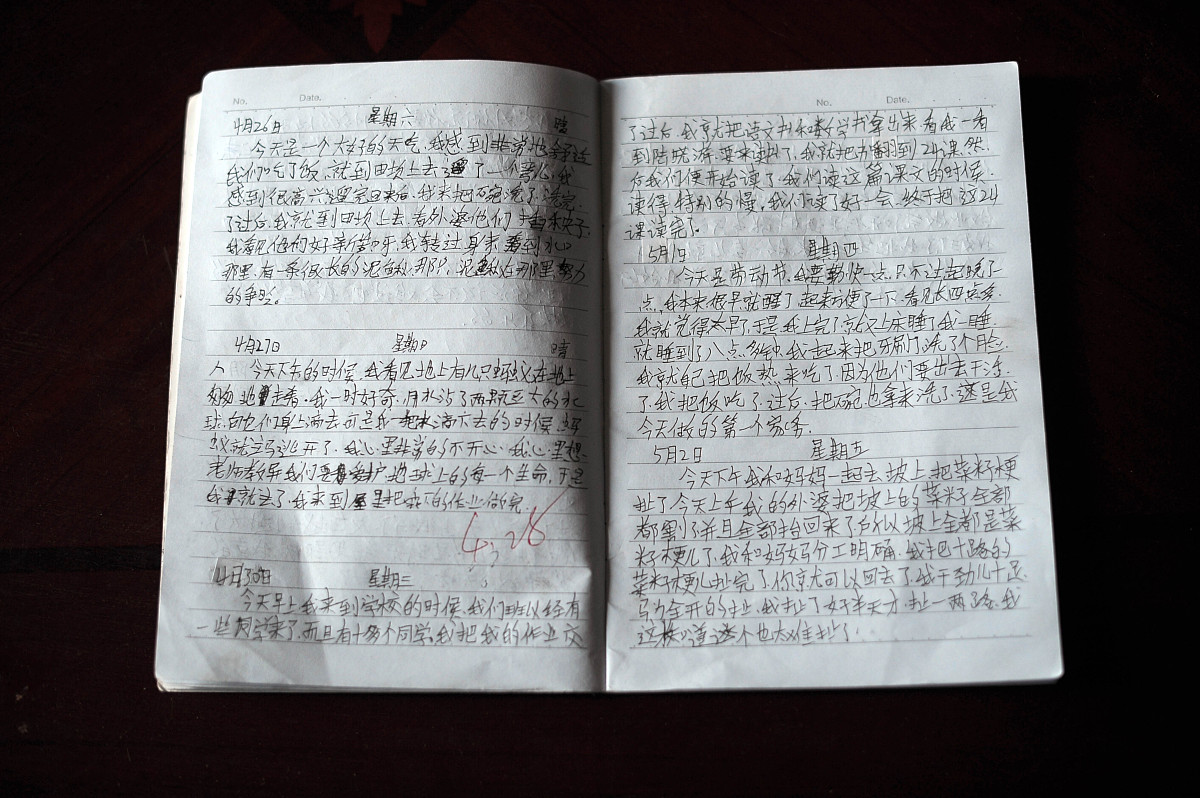 No. Date.
4月26日 星期六 晴
今天是一个大好的天气,我感到非常地舒适
我们吃了饭,就到田坎上去了一个弯儿,我
感到很高兴,完回来后,我来把碗洗了,洗完
了过后,我就到田坎上去,看外婆他们秧子,
我看见他们好辛苦呀,我转过身来看到水口
那里,有一条很长的泥鳅,那只泥鳅在那里努力
的争。
4月27日 星期日 晴
今天下午的时候,我看见地上有几只蚂蚁在地上
地走着,我一时好奇,用水沾了两颗巨大的水
球,向它们身上滴去,可是我把水滴下去的时候,蚂
蚁就立马逃开了,我心里非常的不开心,我心里想:
老师教导我们要爱护地球上的每一个生命,于是
我就走了,我来到屋里把我的作业做完。
4,28
4月30日 星期三
今天早上我来到学校的时候,我们班以经有
一些同学来了,而且有十多个同学,我把我的作业交
No. Date.
了过后,我就把语文书和数学书拿出来,看我一看
到陆晓海,要来读书了,我就把书翻到24课,然
后我们便开始读了,我们读这篇课文的时候,
读得特别的慢,我们读了好一会,终于把这24
课读完了。
5月1日 星期四
今天是劳动节,我要勤快一点,只不过起晚了一
点,我本来很早就醒了,起来方便了一下,看见才四点多,
我就觉得太早了,于是,我上完了就又上床睡了,我一睡,
就睡到了八点多钟,我起来把牙刷了,洗了个脸,
我就自己把饭热来吃了,因为他们要出去干活
了,我把饭吃了,过后,把碗也拿来洗了,这是我
今天做的第一个家务。
5月2日 星期五
今天下午我和妈妈一起去坡上把菜籽梗
扯了,今天上午我的外婆把坡上的菜籽全部
都割了,并且全部抬回来了,所以坡上全都是菜
籽梗儿了,我和妈妈分工明确,我把十路的
菜籽梗儿扯完了,你就可以回去了,我干劲儿十足,
马力全开的扯,我扯了好半天才扯一两路,我